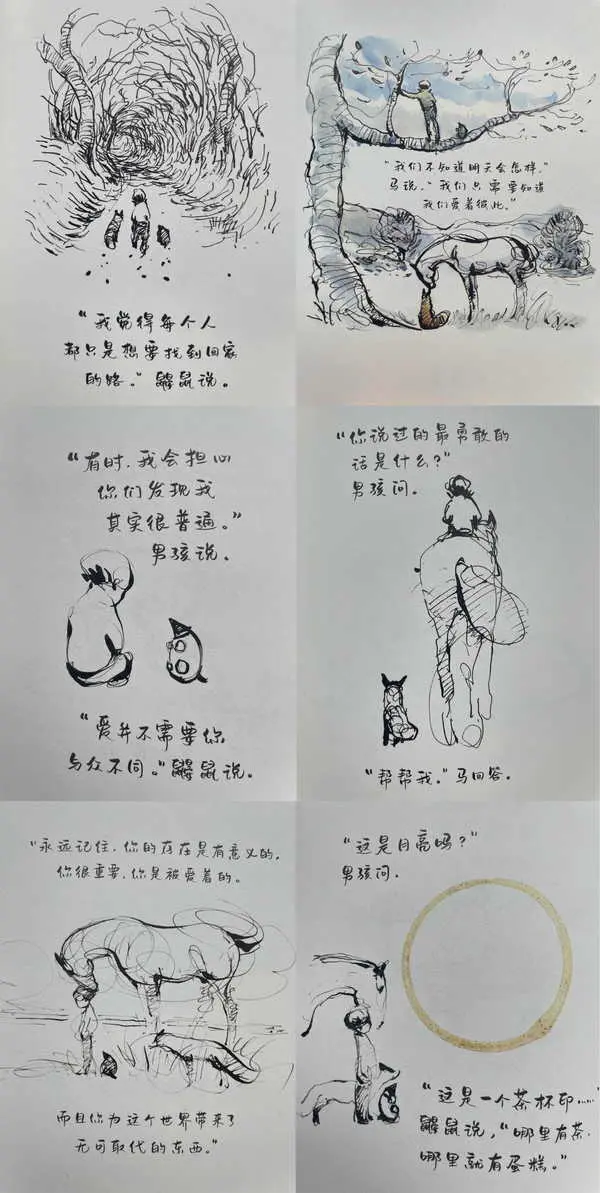 “我觉得每个人
都只是想要找到回家
的路。”鼹鼠说。
“我们不知道明天会怎样，”
马说，“我们只需要知道
我们爱着彼此。”
“有时，我会担心
你们发现我
其实很普通。”
男孩说。
“爱并不需要你
与众不同。”鼹鼠说。
“你说过的最勇敢的
话是什么？”
男孩问。
“帮帮我。”马回答。
“永远记住，你的存在是有意义的，
你很重要，你是被爱着的。
而且你为这个世界带来了
无可取代的东西。”
“这是月亮吗？”
男孩问。
“这是一个茶杯印……”
鼹鼠说，“哪里有茶，
哪里就有蛋糕。”